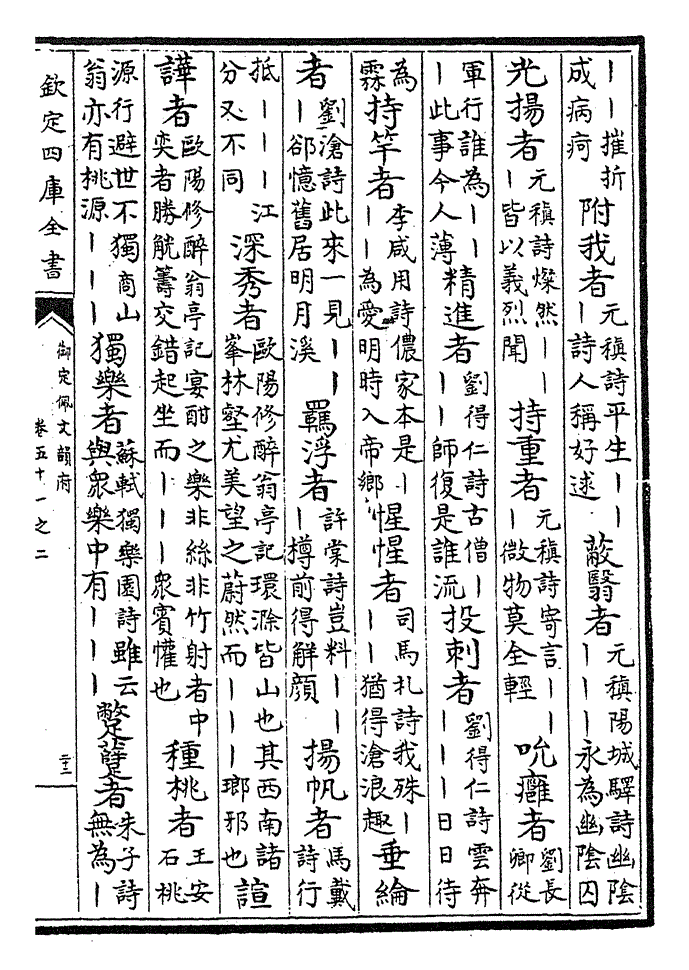 丨丨摧折成病疴 附我者 元稹詩平生丨丨丨詩人稱好逑 蔽翳者 元稹陽城驛詩幽陰丨丨丨永為幽陰囚
光揚者 元稹詩燦然丨丨丨皆以義烈聞 持重者 元稹詩寄言丨丨丨微物莫全輕 吮癰者 劉長卿從
軍行誰為丨丨丨此事今人薄 精進者 劉得仁詩古僧丨丨丨師復是誰流 投刺者 劉得仁詩雲奔丨丨丨日日待
為霖 持竿者 李咸用詩儂家本是丨丨丨為愛明時入帝鄉 惺惺者 司馬札詩我殊丨丨丨猶得滄浪趣 垂綸
者 劉滄詩此來一見丨丨丨郤憶舊居明月溪 羈浮者 許棠詩豈料丨丨丨樽前得解顏 揚帆者 馬戴詩行
抵丨丨丨江分又不同 深秀者 歐陽修醉翁亭記環滁皆山也其西南諸峯林壑尤美望之蔚然而丨丨丨瑯邪也 諠
譁者 歐陽修醉翁亭記宴酣之樂非絲非竹射者中奕者勝觥籌交錯起坐而丨丨丨眾賓懽也 種桃者 王安石桃
源行避世不獨商山翁亦有桃源丨丨丨 獨樂者 蘇軾獨樂園詩雖云與眾樂中有丨丨丨 蹩躠者 朱子詩無為丨
欽定四庫全書 御定佩文韻府 卷五十一之二 二十二